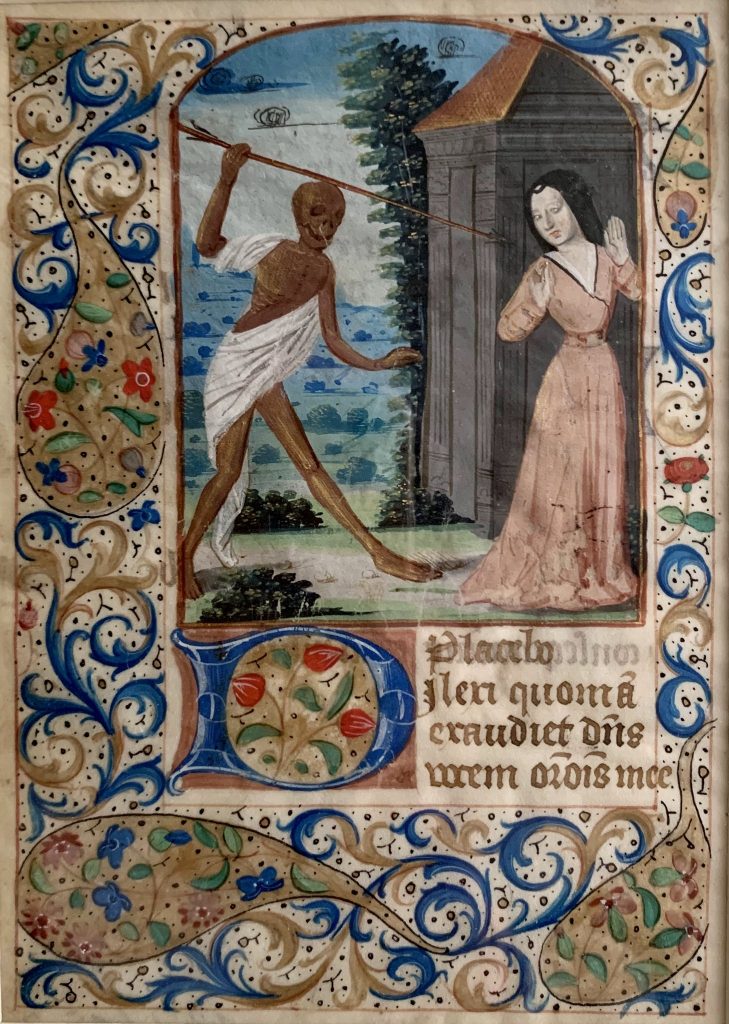 Placebo
Dilexi quoniā
exaudiet dn̄s
vocem or̄ōis mee.